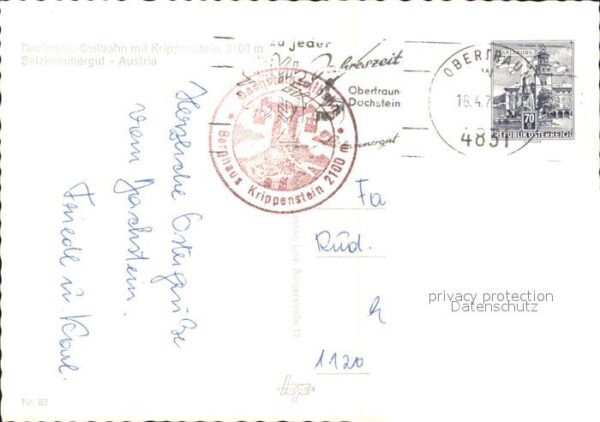 Dachstein-Seilbahn mit Krippenstein, 2100 m
Salzkammergut - Austria
Herzliche Ostergrüße
vom Dachstein.
Friedl u. Karl.
zu jeder
Jahreszeit
Obertraun-
Dachstein
Berghaus Krippenstein 2100 m
OBERTRAUN
16.4.7
4831
SALZBURG
70
REPUBLIK ÖSTERREICH
Fa
Rud.
1120
privacy protection
Datenschutz
Nr. 82